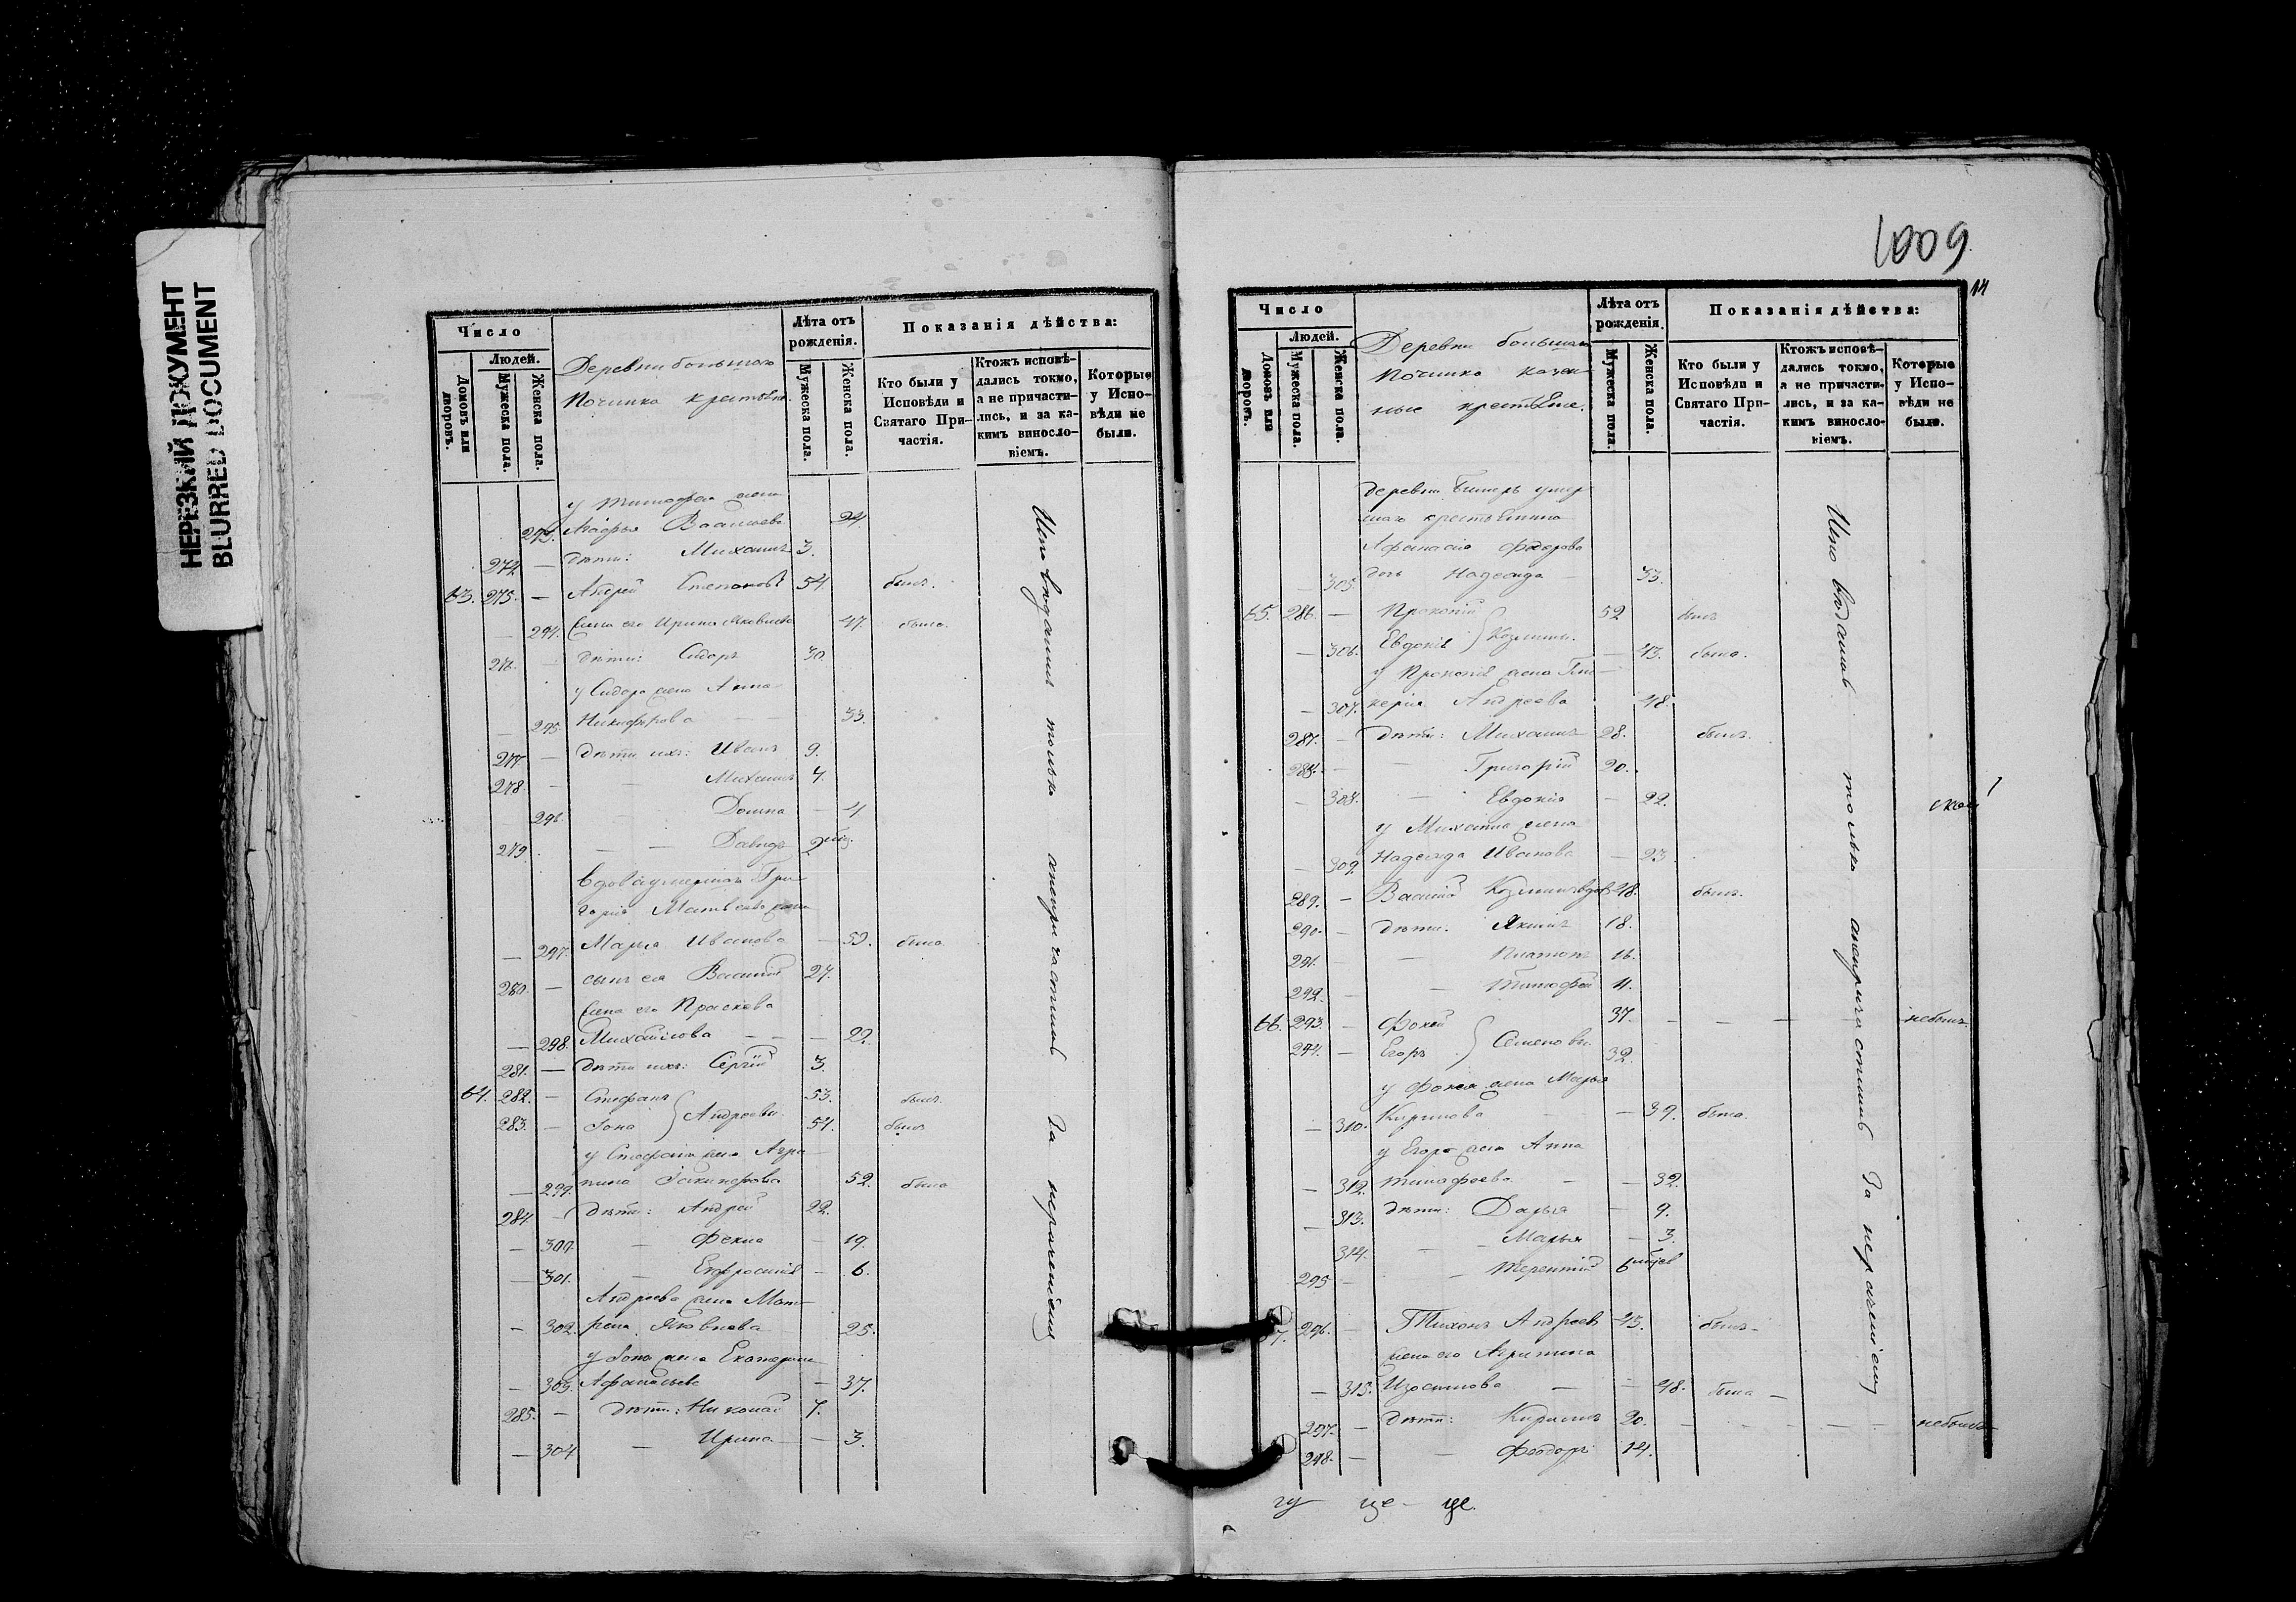 НЕРЕЗКИЙ ДОКУМЕНТ
BLURRED DOCUMENT
Число
Людей.
Домовъ или дворовъ.
Мужеска пола.
Женска пола.
Деревни большаго
Починка крестьян.
Лѣта отъ рожденія.
Мужеска пола.
Женска пола.
Показанія дѣйства:
Кто были у Исповѣди и Святаго Причастія.
Ктожъ исповѣдались токмо, а не причастились, и за какимъ винословіемъ.
Которые у Исповѣди не были.
у Тимофея жена
293. Марья Васильева 24.
274. — дѣти: Михаилъ 3.
63. 275. — Андрей Степановъ 54. былъ.
— 294. жена его Ирина Яковлева 47. была.
276. — дѣти: Сидоръ 30.
у Сидора жена Анна
— 295. Никифорова — — 33.
277. — дѣти ихъ: Иванъ 9.
278. — — Михаилъ 7.
296. — Домна — 4.
279. — — Давидъ 2 мѣс.
вдова умершаго Гри-
горія Матвѣева жена
— 297. Марья Иванова — 59. была
280. — сынъ ея Василій 27.
жена его Праскева
— 298. Михайлова — — — 22.
281. — дѣти ихъ: Сергій 3.
64. 282. — Стефанъ 53. былъ.
283. — Іона } Андреевы. 54. былъ
у Стефана жена Агра-
— 299. пина 52. была
284. — дѣти: Андрей 22.
— 300. — Фекла — 19.
— 301. — Евфросинія — 6.
Андреева жена Мат-
— 302. рена Яковлева 25.
у Іоны жена Екатерина
— 303. Афанасьева — 37.
285. — дѣти: Николай 7.
— 304 — Ирина — 3.
Исповѣдались только а не причастились за нераченіемъ
1009.
14
Число
Людей.
Домовъ или дворовъ.
Мужеска пола.
Женска пола.
Деревни большаго
Починка казен-
ные крестьяне.
Лѣта отъ рожденія.
Мужеска пола.
Женска пола.
Показанія дѣйства:
Кто были у Исповѣди и Святаго Причастія.
Ктожъ исповѣдались токмо, а не причастились, и за какимъ винословіемъ.
Которые у Исповѣди не были.
деревни умер-
шаго крестьянина
Афанасія Федорова
305. дочь Надежда — 33.
65. 286. — Прокопій 52 былъ
— 306. Евдокія } Козмины. — 43. была.
у Прокопія жена Гли-
— 307. керія Андреева 48.
287. — дѣти: Михаилъ 28. былъ.
288. — — Григорій 20.
— 308. — Евдокія — 22.
у Михаила жена
— 309. Надежда Иванова — 23.
289. — Василій Козминъ вдов. 48. былъ.
290. — дѣти: Якимъ 18.
291. — — Платонъ 16.
292. — — Тимофей 11.
66. 293. — Фокей 37. — — — небылъ.
294. — Егоръ } Семеновы 32.
у Фокея жена Марья
— 310. Кирилова — — 39. была.
у Егора жена Анна
— 312. Тимофеева — — 32.
— 313. дѣти: Дарья — 9.
314. — — Марья — 3.
295 — — Терентій 6 мѣсяцев
67. 296. — Тихонъ Андреев 45. былъ —
жена его Агрипина
— 315. Изосимова — — 48. была —
297. — дѣти: Кирилъ 20. — — — небылъ
298. — — Феодоръ 14.
Исповѣдались только а не причастились за нераченіемъ